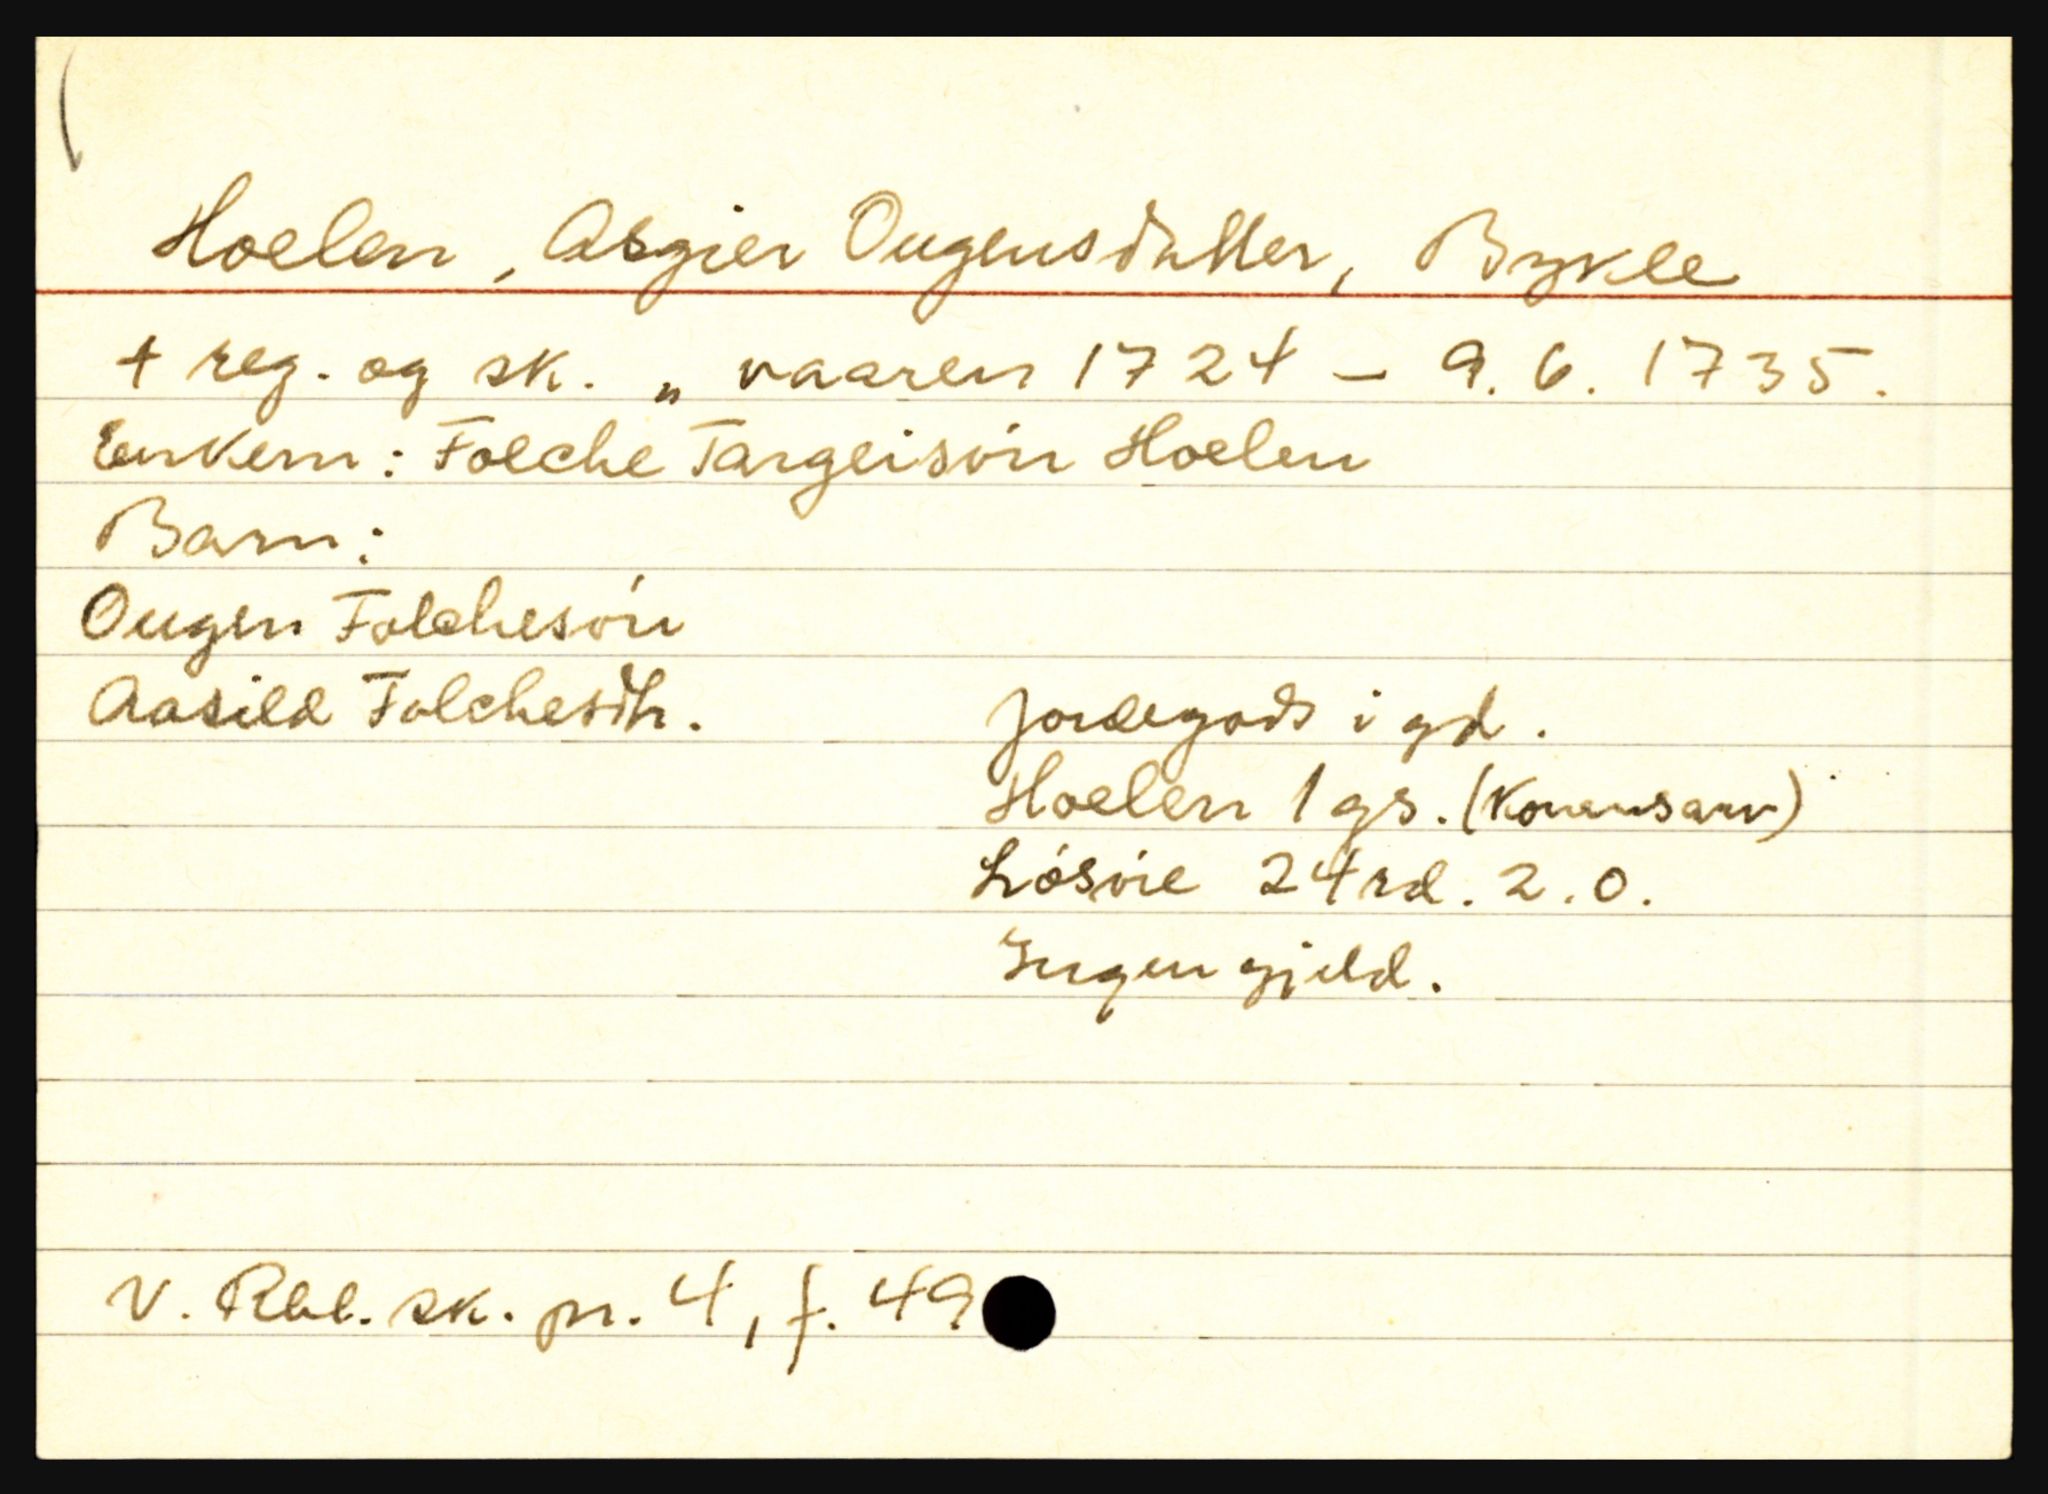 Hoelen, Asgier Ougensdatter, Bykle
+ reg. og sk. „ vaaren 1724 – 9.6.1735.
Enkem: Folche Targeisón Hoelen
Barn:
Ougen Folchesón
Aasild Folchesdtr.
Jordegods i gd.
Hoelen 1 gs. (Konensarv)
Lósóre 24 rd. 2. 0.
Ingen gjeld.
V. Rbl. sk. pr. 4, f. 49